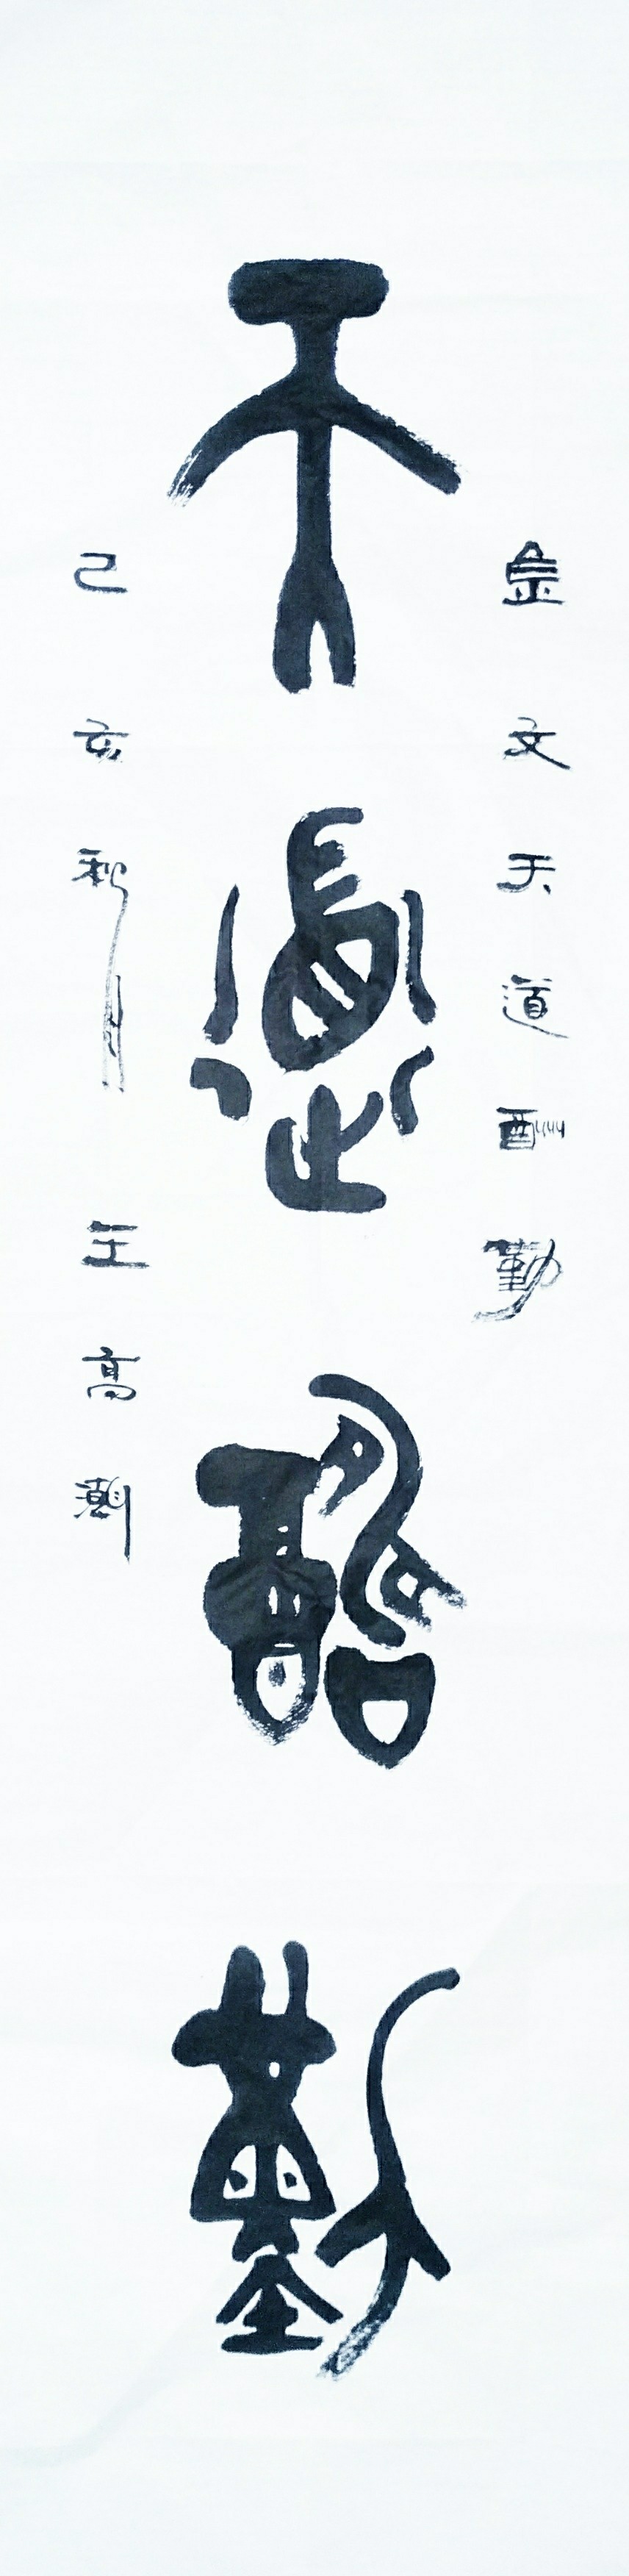 金文天道酬勤
天道酬勤
己亥秋月 王高潮